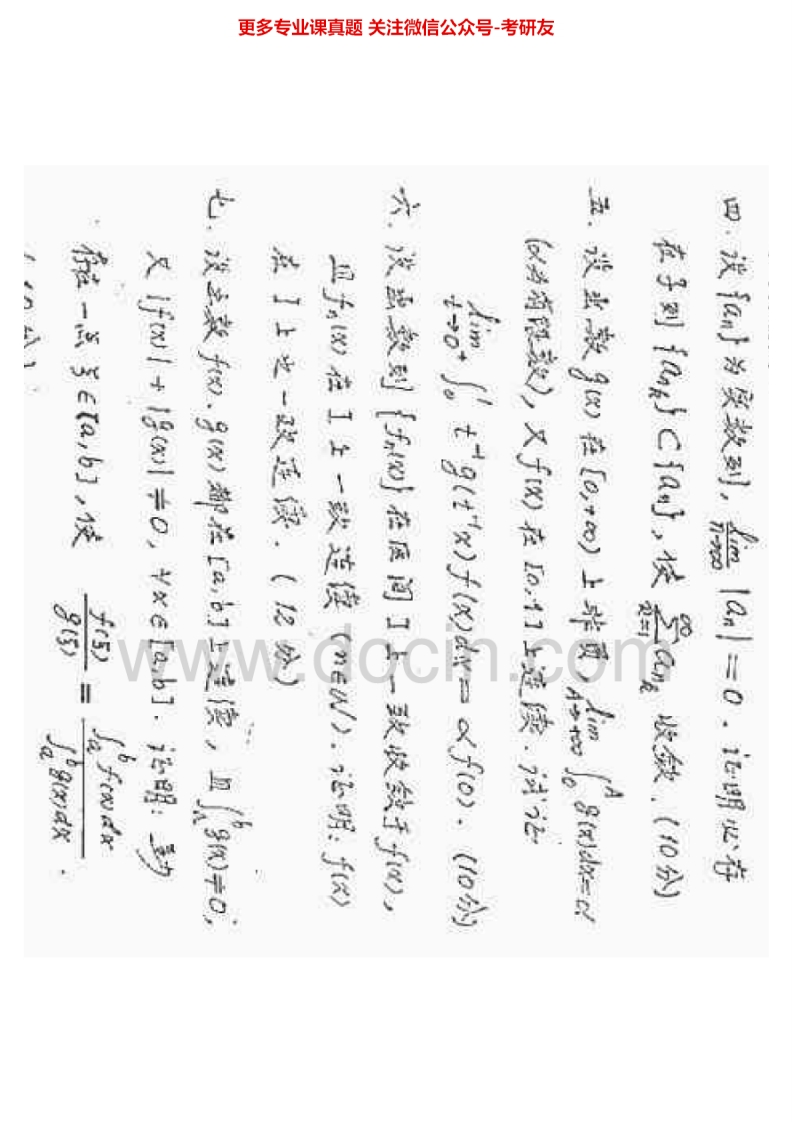 更多专业课真题 关注微信公众号-考研友
四. 设{aₙ}为实数列, \underline{lim}_{n→∞} |aₙ| = 0. 证明必存
在子列{a_{n_k}}⊂{aₙ}, 使 ∑_{k=1}^{∞} a_{n_k} 收敛. (10分)
五. 设函数g(x)在[0,+∞)上非负, lim_{A→+∞} ∫₀^A g(x)dx=α
(α为有限数), 又f(x)在[0,1]上连续. 试证
lim_{t→0⁺} ∫₀¹ t⁻¹g(t⁻¹x)f(x)dx = αf(0). (10分)
六. 设函数列{fₙ(x)}在区间I上一致收敛于f(x),
且fₙ(x)在I上一致连续(n∈N). 证明: f(x)
在I上也一致连续. (12分)
七. 设函数f(x). g(x)都在[a,b]上连续, 且∫ₐᵇ g(x)≠0,
又|f(x)|+|g(x)|≠0, ∀x∈[a,b]. 证明: 至少
存在一点ξ∈[a,b], 使 f(ξ)/g(ξ) = ∫ₐᵇ f(x)dx / ∫ₐᵇ g(x)dx.
www.docin.com